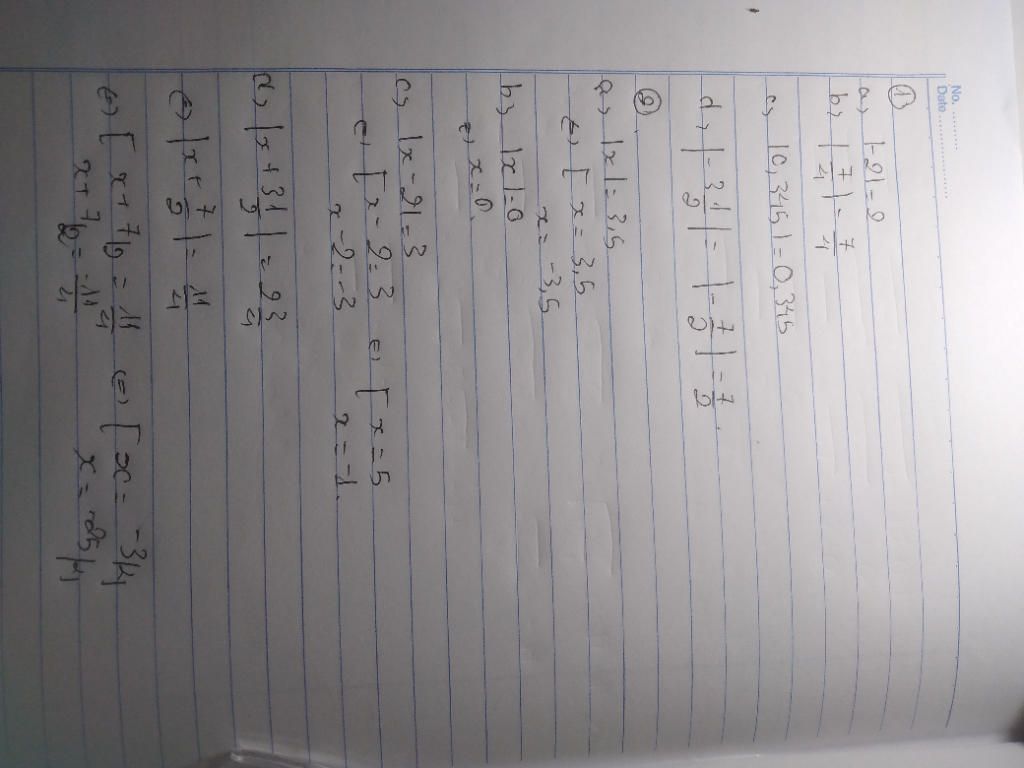 No. ..........
Date ....................
①
a, |-2| = 2
b, |7/4| = 7/4
c, |0,345| = 0,345
d, |-3 1/2| = |-7/2| = 7/2.
②
a, |x| = 3,5
⇔ [ x = 3,5
x = -3,5
b, |x| = 0
⇔ x = 0
c, |x - 2| = 3
⇔ [ x - 2 = 3 ⇔ [ x = 5
x - 2 = -3 x = -1.
d, |x + 3 1/2| = 2 3/4
⇔ |x + 7/2| = 11/4
⇔ [ x + 7/2 = 11/4 ⇔ [ x = -3/4
x + 7/2 = -11/4 x = -25/4